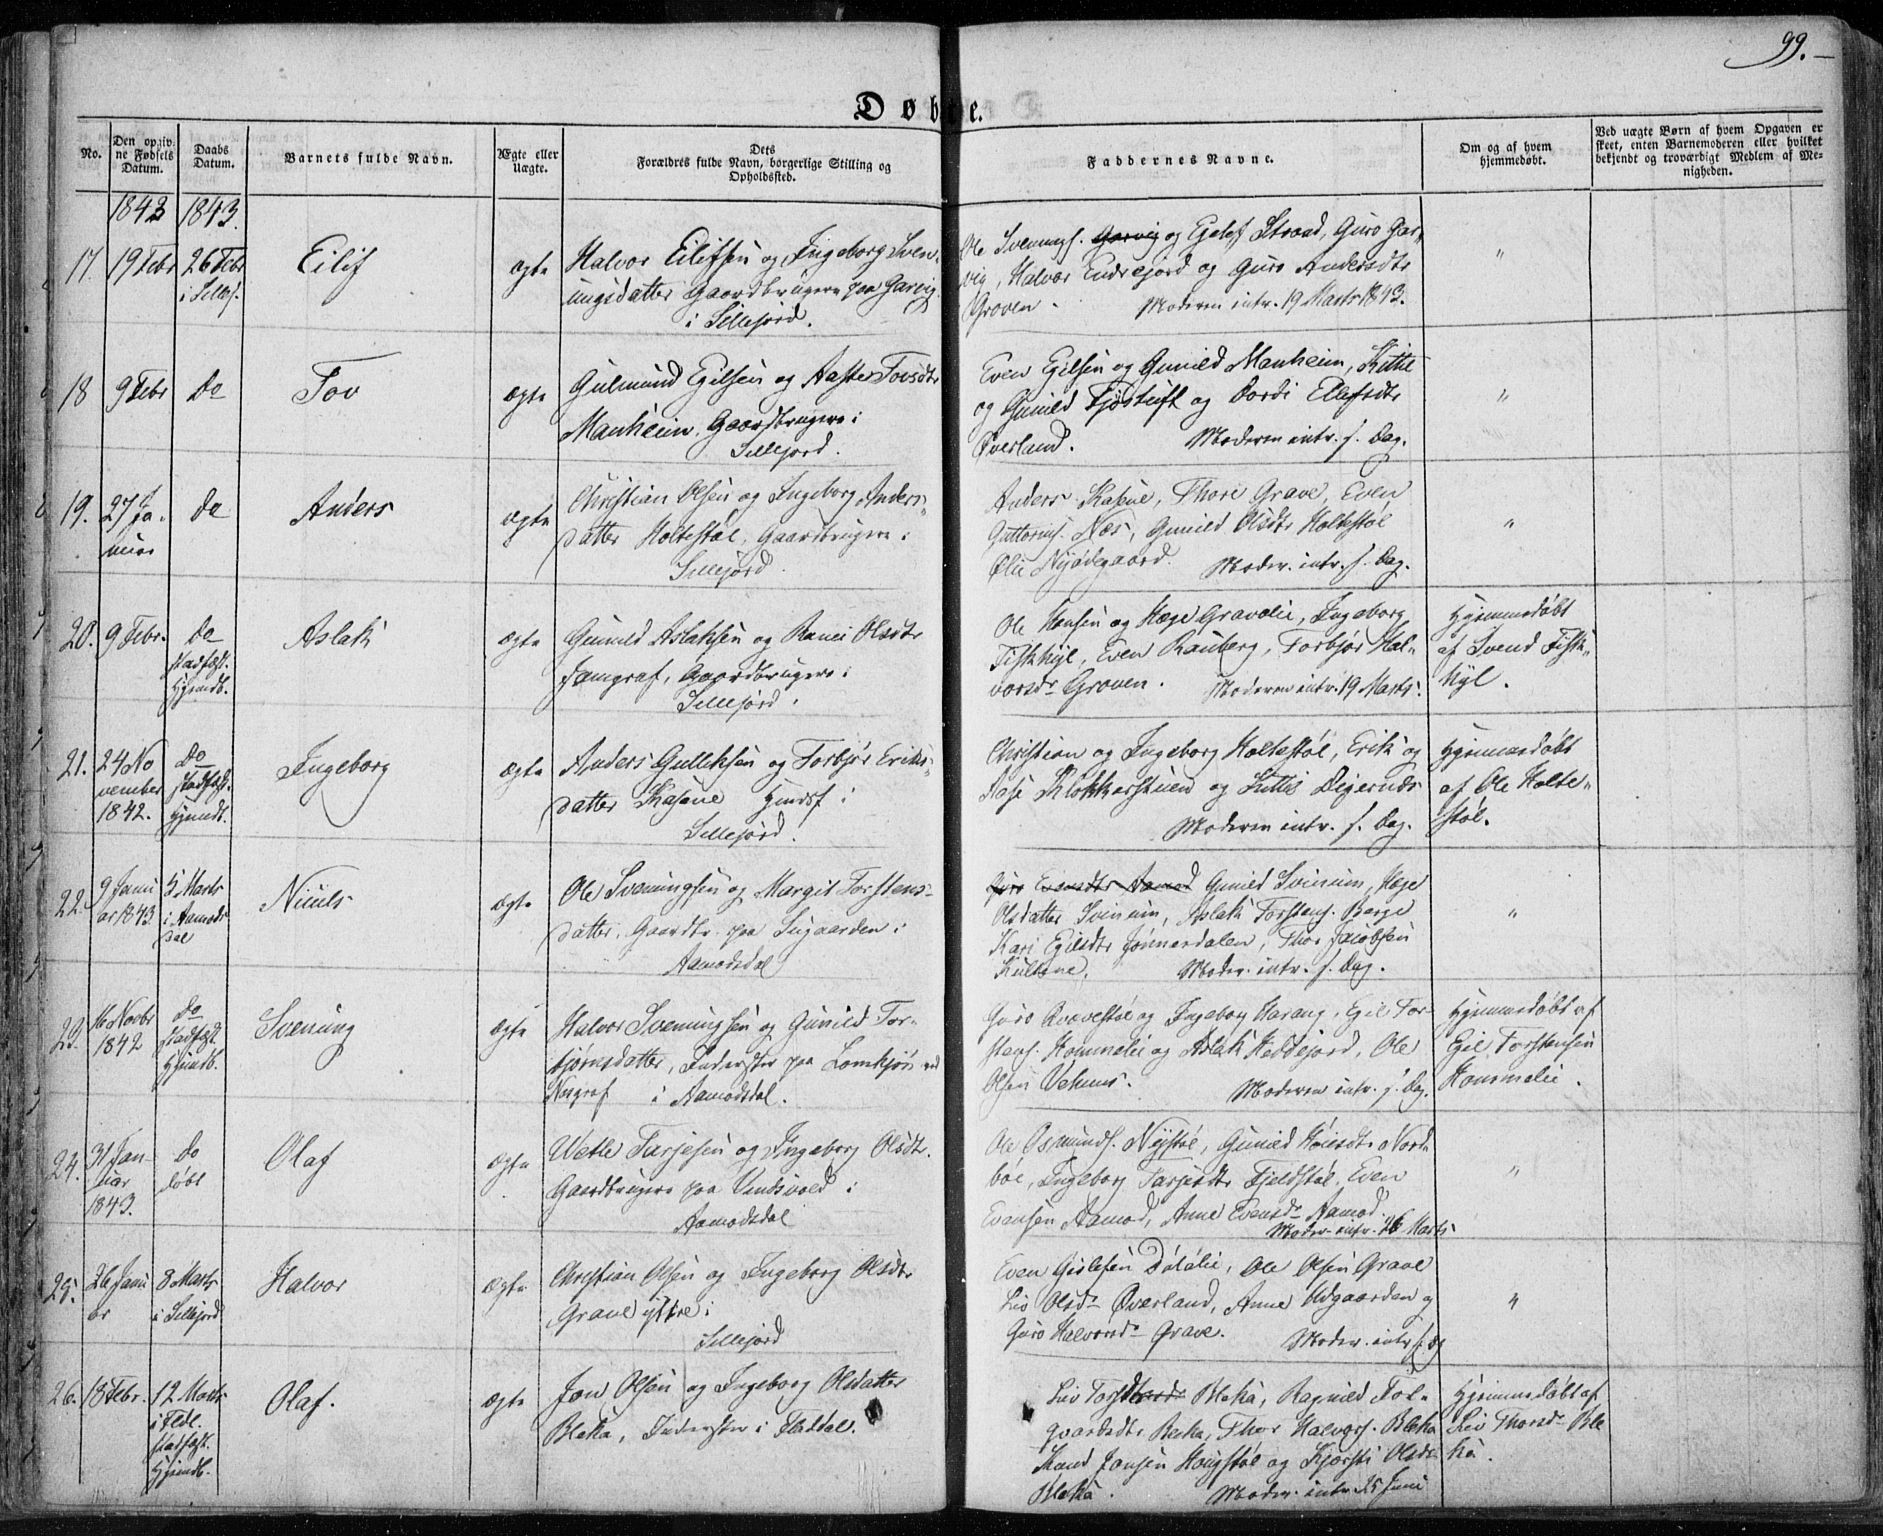 99.
Døbte.
No.
Den opgivne Fødsels Datum.
Daabs Datum.
Barnets fulde Navn.
Ægte eller Uægte.
Dets Forældres fulde Navn, borgerlige Stilling og Opholdssted.
Faddernes Navne.
Om og af hvem hjemmedøbt.
Ved uægte Børn af hvem Opgaven er skeet, enten Barnemoderen eller hvilket bekjendt og troværdigt Medlem af Menigheden.
1843 1843.
17. 19 Febr 26 Febr i Sillejf. Eilif ægte
Halvor Eilifsen og Ingeborg Sven-
ungsdatter Gaardbrugere paa Garvig
i Sillejord.
Ole Svenungs. Garvig og Egelef Strand, Guro Gar-
vig, Halvor Endrejord og Guro Andersdtr
Groven. Moderen intr. 19 Marts 1843.
"
18 9 Febr Do Tov ægte
Gulmund Egilsen og Aaste Tovsdtr
Manheim, Gaardbrugere i
Sillejord.
Even Egilsen og Gunild Manheim, Kittil
og Gunild Tjøstuft og Dordi Elefsdtr
Øverland. Moderen intr. s. Dag.
"
19. 27 Januar Do Anders ægte
Christian Olsen og Ingeborg Anders-
datter Holtestøl, Gaardbrugere i
Sillejord.
Anders Kasene, Thore Grave, Even
Guttorms. Næs, Gunild Olsdtr Holtestøl
Olie Nyødegaard. Moder. intr. s. Dag.
"
20. 9 Febr. Do stadfæst. Hjemdb. Aslak ægte
Gunuld Aslaksen og Ranei Olsdtr
Jamgraf, Gaardbrugere i
Sillejord.
Ole Hansen og Hæge Gravalie, Ingeborg
Fiskhyl, Even Rauberg, Torbjør Hal-
vorsdr Groven. Moderen intr. 19 Marts.
Hjemmedøbt
af Svend Fisk-
hyl.
21. 24 November 1842. Do stadfæst. Hjemdt. Ingeborg ægte
Anders Gulliksen og Torbjør Eriks-
datter Kasene Huusf i
Sillejord.
Christian og Ingeborg Holtestøl, Erik og
Aase Klokkerstuen og Kittil Dejernds
Moderen intr. s. Dag.
Hjemmedøbt
af Ole Holte-
støl.
22. 9 Januar 1843 5 Marts i Aamodsdal Niculs ægte
Ole Svenungsen og Margit Torstens-
datter, Gaardbr. paa Sugaarden i
Aamodsdal
Guro Evensdtr Aamod Gunild Svinum, Hæge
Olsdatter Svinum, Aslak Torstens. Berge
Kari Egilsdtr Jønnerdalen, Thor Jacobsen
Kultene, Moder. intr. s. Dag.
"
23. 16 Novbr 1842 Do stadfæst. Hjemdb. Svenung ægte
Halvor Svenungsen og Gunild Tor-
bjørnsdatter, Inderster paa Lomkjøn ved
Norgraf i Aamodsdal.
Guro Rovestøl og Ingeborg Harang, Egil Tor-
stens. Hommelie og Aslak Heddejord, Ole
Olsen Vehuus. Moderen intr. s. Dag.
Hjemmedøbt af
Egil Torstensen
Hommelie.
24. 31 Januar 1843. Do døbt Olaf ægte
Wetle Tarjesen og Ingeborg Olsdtr.
Gaardbrugere paa Vindsvold i
Aamodsdal
Ole Osmunds. Nystøl, Gunild Høiesdtr Nord-
bøe, Ingeborg Tarjesdtr Fjeldstøl, Even
Evensen Aamod, Anne Evensdr Aamod.
Moder. intr. 26 Marts
"
25. 26 Januar 8 Marts i Sillejord Halvor ægte
Christian Olsen og Ingeborg Olsdtr
Grave ystre i
Sillejord
Even Gislesen Dølalie, Ole Olsen Grave
Liv Olsdr Øverland, Anne Udgaarden og
Guro Halvorsdr Grave. Moder. intr s. Dg
"
26. 18 Febr. 12 Marts i Fldl. stadfæst. Hjemdb. Olaf. ægte
Jon Olsen og Ingeborg Olsdatter
Bleka, Inderster i Flatdal.
Liv Torsdr Bleka, Ragnild Tol-
gvardsdtr Bleka, Thor Halvors. Bleka
Knud Jonsen Hougstøl og Kjersti Olsdr
Bleka. Moder. intr. 25 Juni
Hjemmedøbt af
Liv Thorsdr Ble
ka.